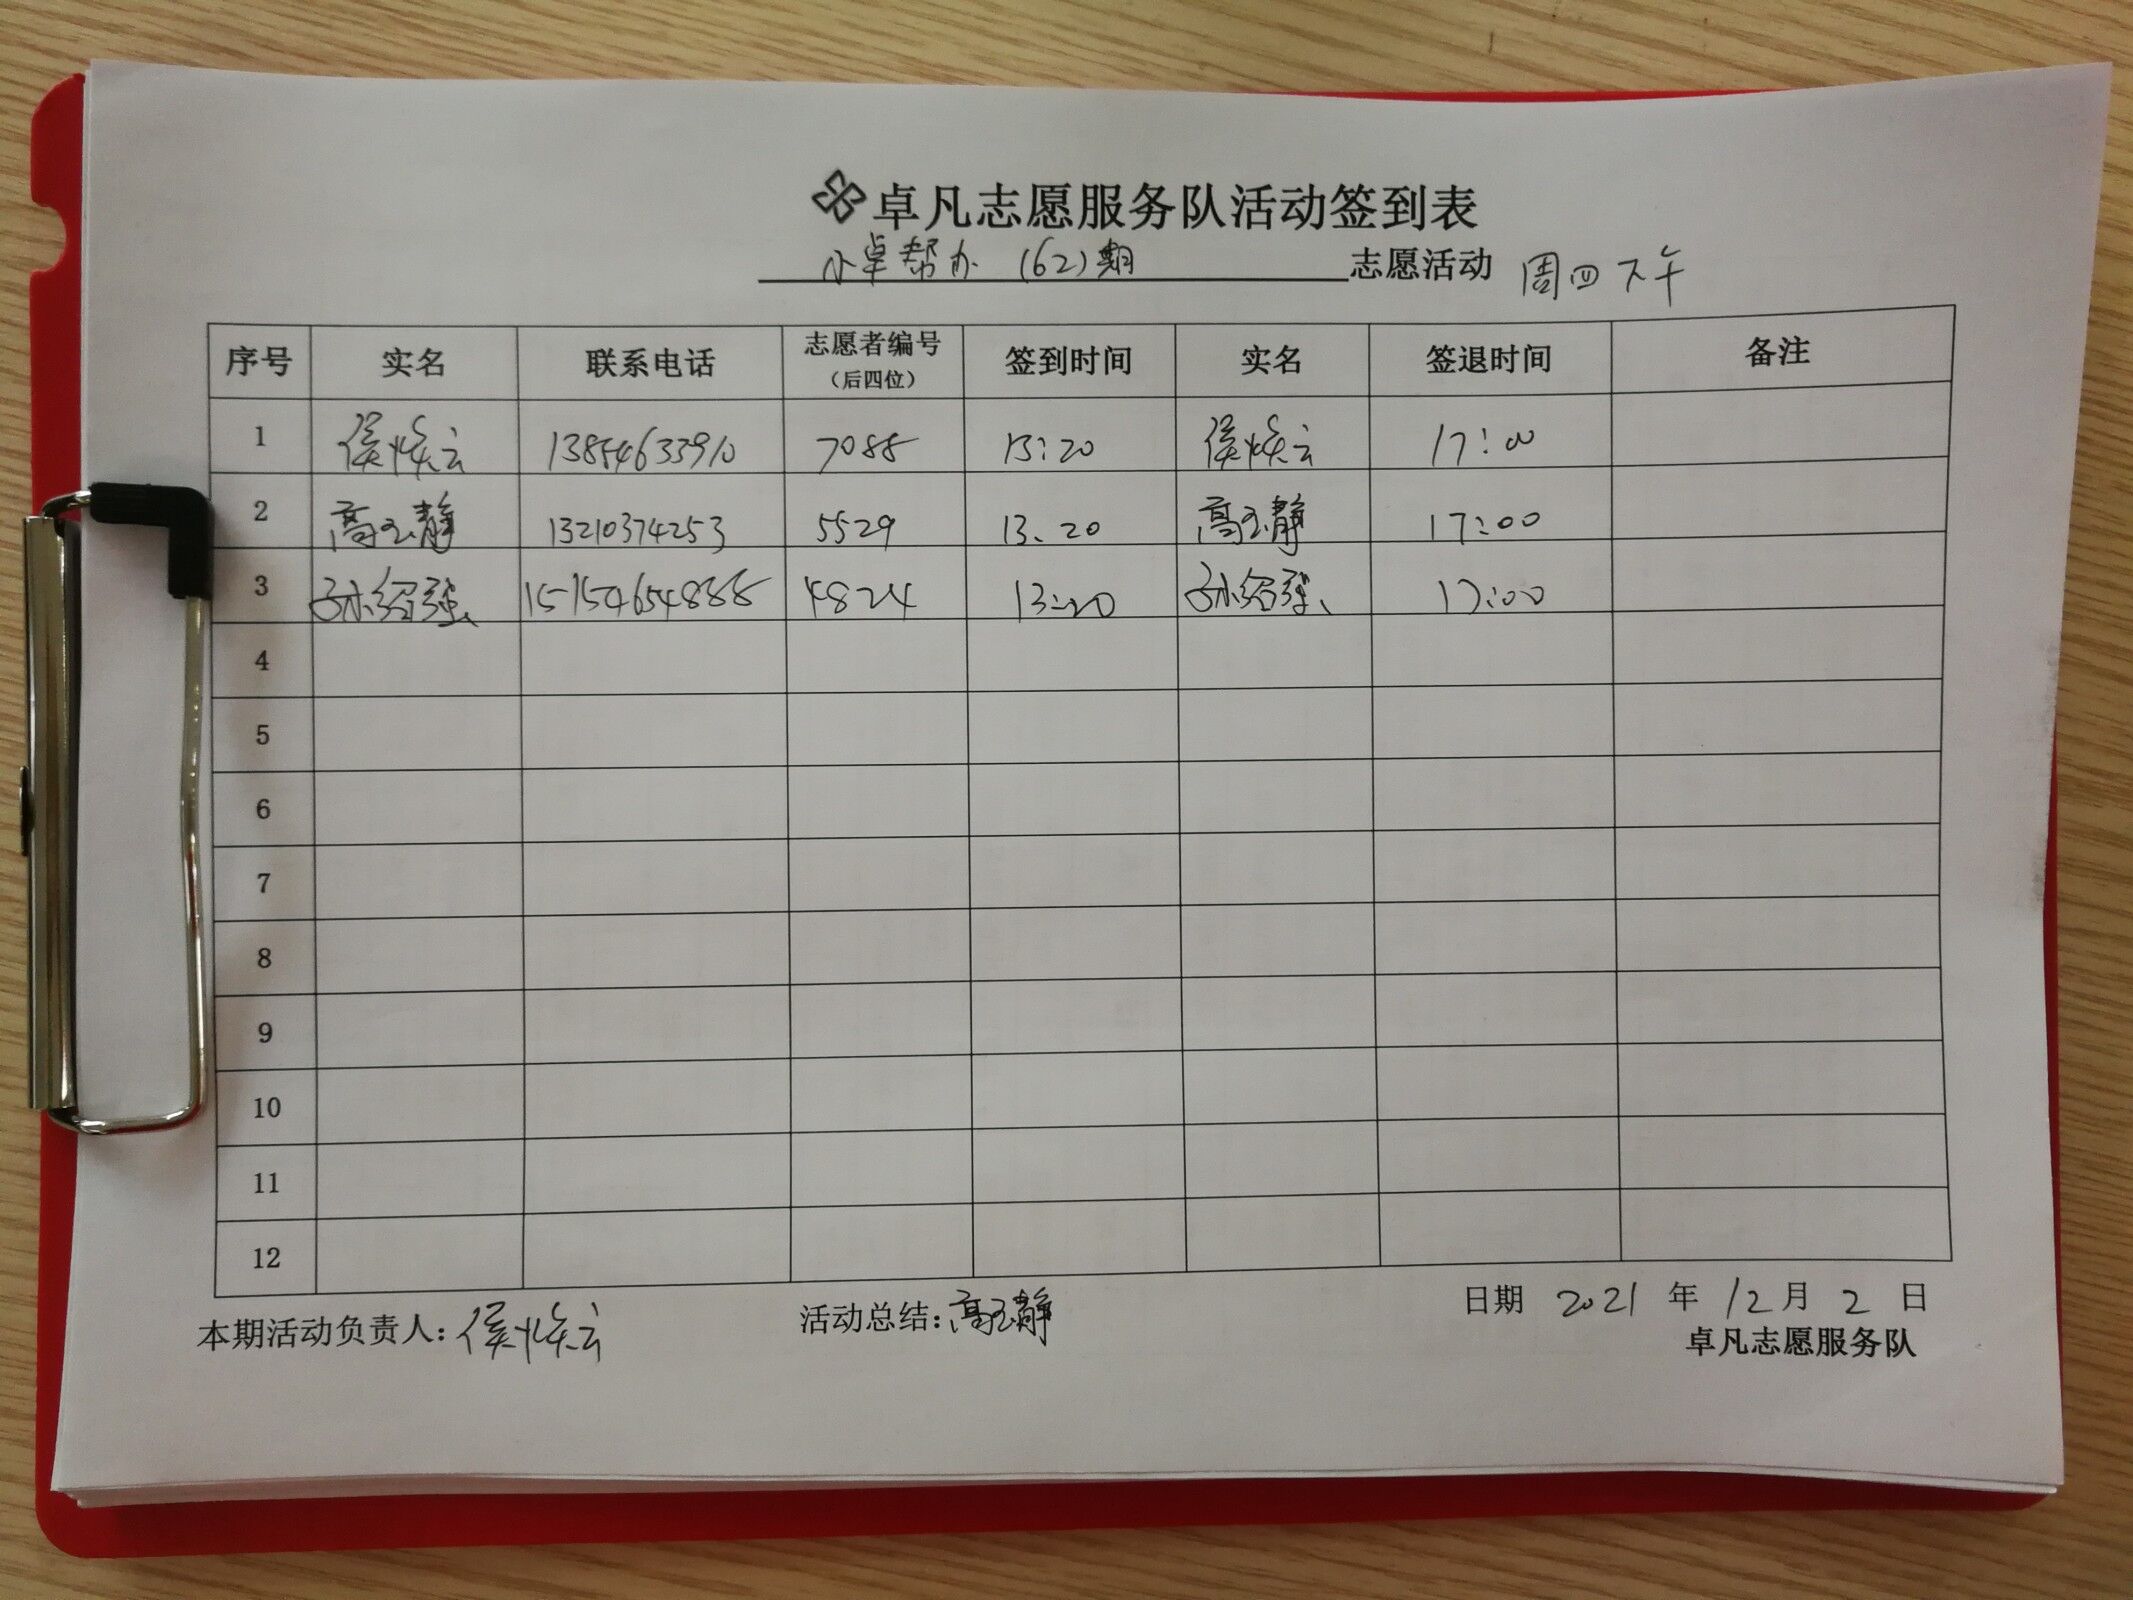 卓凡志愿服务队活动签到表
小卓帮办 (62)期 志愿活动 周四下午
序号 实名 联系电话 志愿者编号（后四位） 签到时间 实名 签退时间 备注
1 侯焕云 13854633910 7088 13:20 侯焕云 17:00
2 高玉静 13210374253 5529 13:20 高玉静 17:00
3 孙绍强 15154654888 4824 13:20 孙绍强 17:00
4
5
6
7
8
9
10
11
12
本期活动负责人：侯焕云 活动总结：高玉静 日期 2021 年 12 月 2 日
卓凡志愿服务队